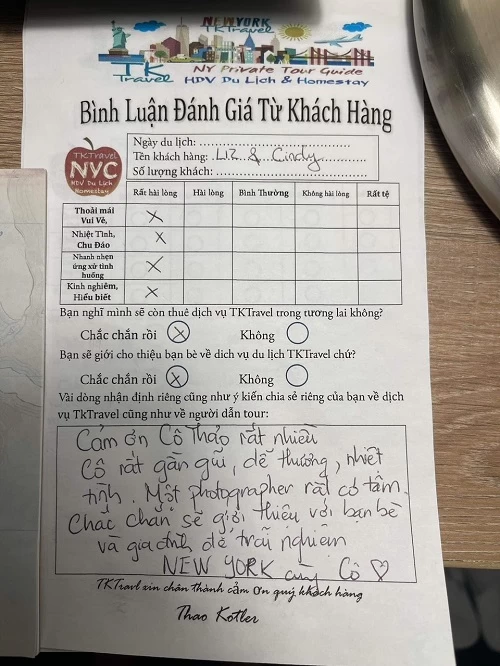 NEWYORK
TKTravel
TK
Travel
NY Private Tour Guide
HDV Du Lịch & Homestay
Bình Luận Đánh Giá Từ Khách Hàng
TKTravel
NYC
HDV Du Lịch
Homestay
Ngày du lịch:
Tên khách hàng: LIZ & Cindy
Số lượng khách:
Rất hài lòng Hài lòng Bình Thường Không hài lòng Rất tệ
Thoải mái
Vui Vẻ,
X
Nhiệt Tình,
Chu Đáo
X
Nhanh nhẹn
ứng xử tình
huống
X
Kinh nghiệm,
Hiểu biết
X
Bạn nghĩ mình sẽ còn thuê dịch vụ TKTravel trong tương lai không?
Chắc chắn rồi X Không
Bạn sẽ giới cho thiệu bạn bè về dich vụ du lịch TKTravel chứ?
Chắc chắn rồi X Không
Vài dòng nhận định riêng cũng như ý kiến chia sẻ riêng của bạn về dịch
vụ TkTravel cũng như về người dẫn tour:
Cảm ơn Cô Thảo rất nhiều
Cô rất gần gũi, dễ thương, nhiệt
tình. Một photographer rất có tâm.
Chắc chắn sẽ giới thiệu với bạn bè
và gia đình để trãi nghiệm
NEW YORK cùng Cô ♡
TKTravl xin chân thành cảm ơn quý khách hàng
Thao Kotler